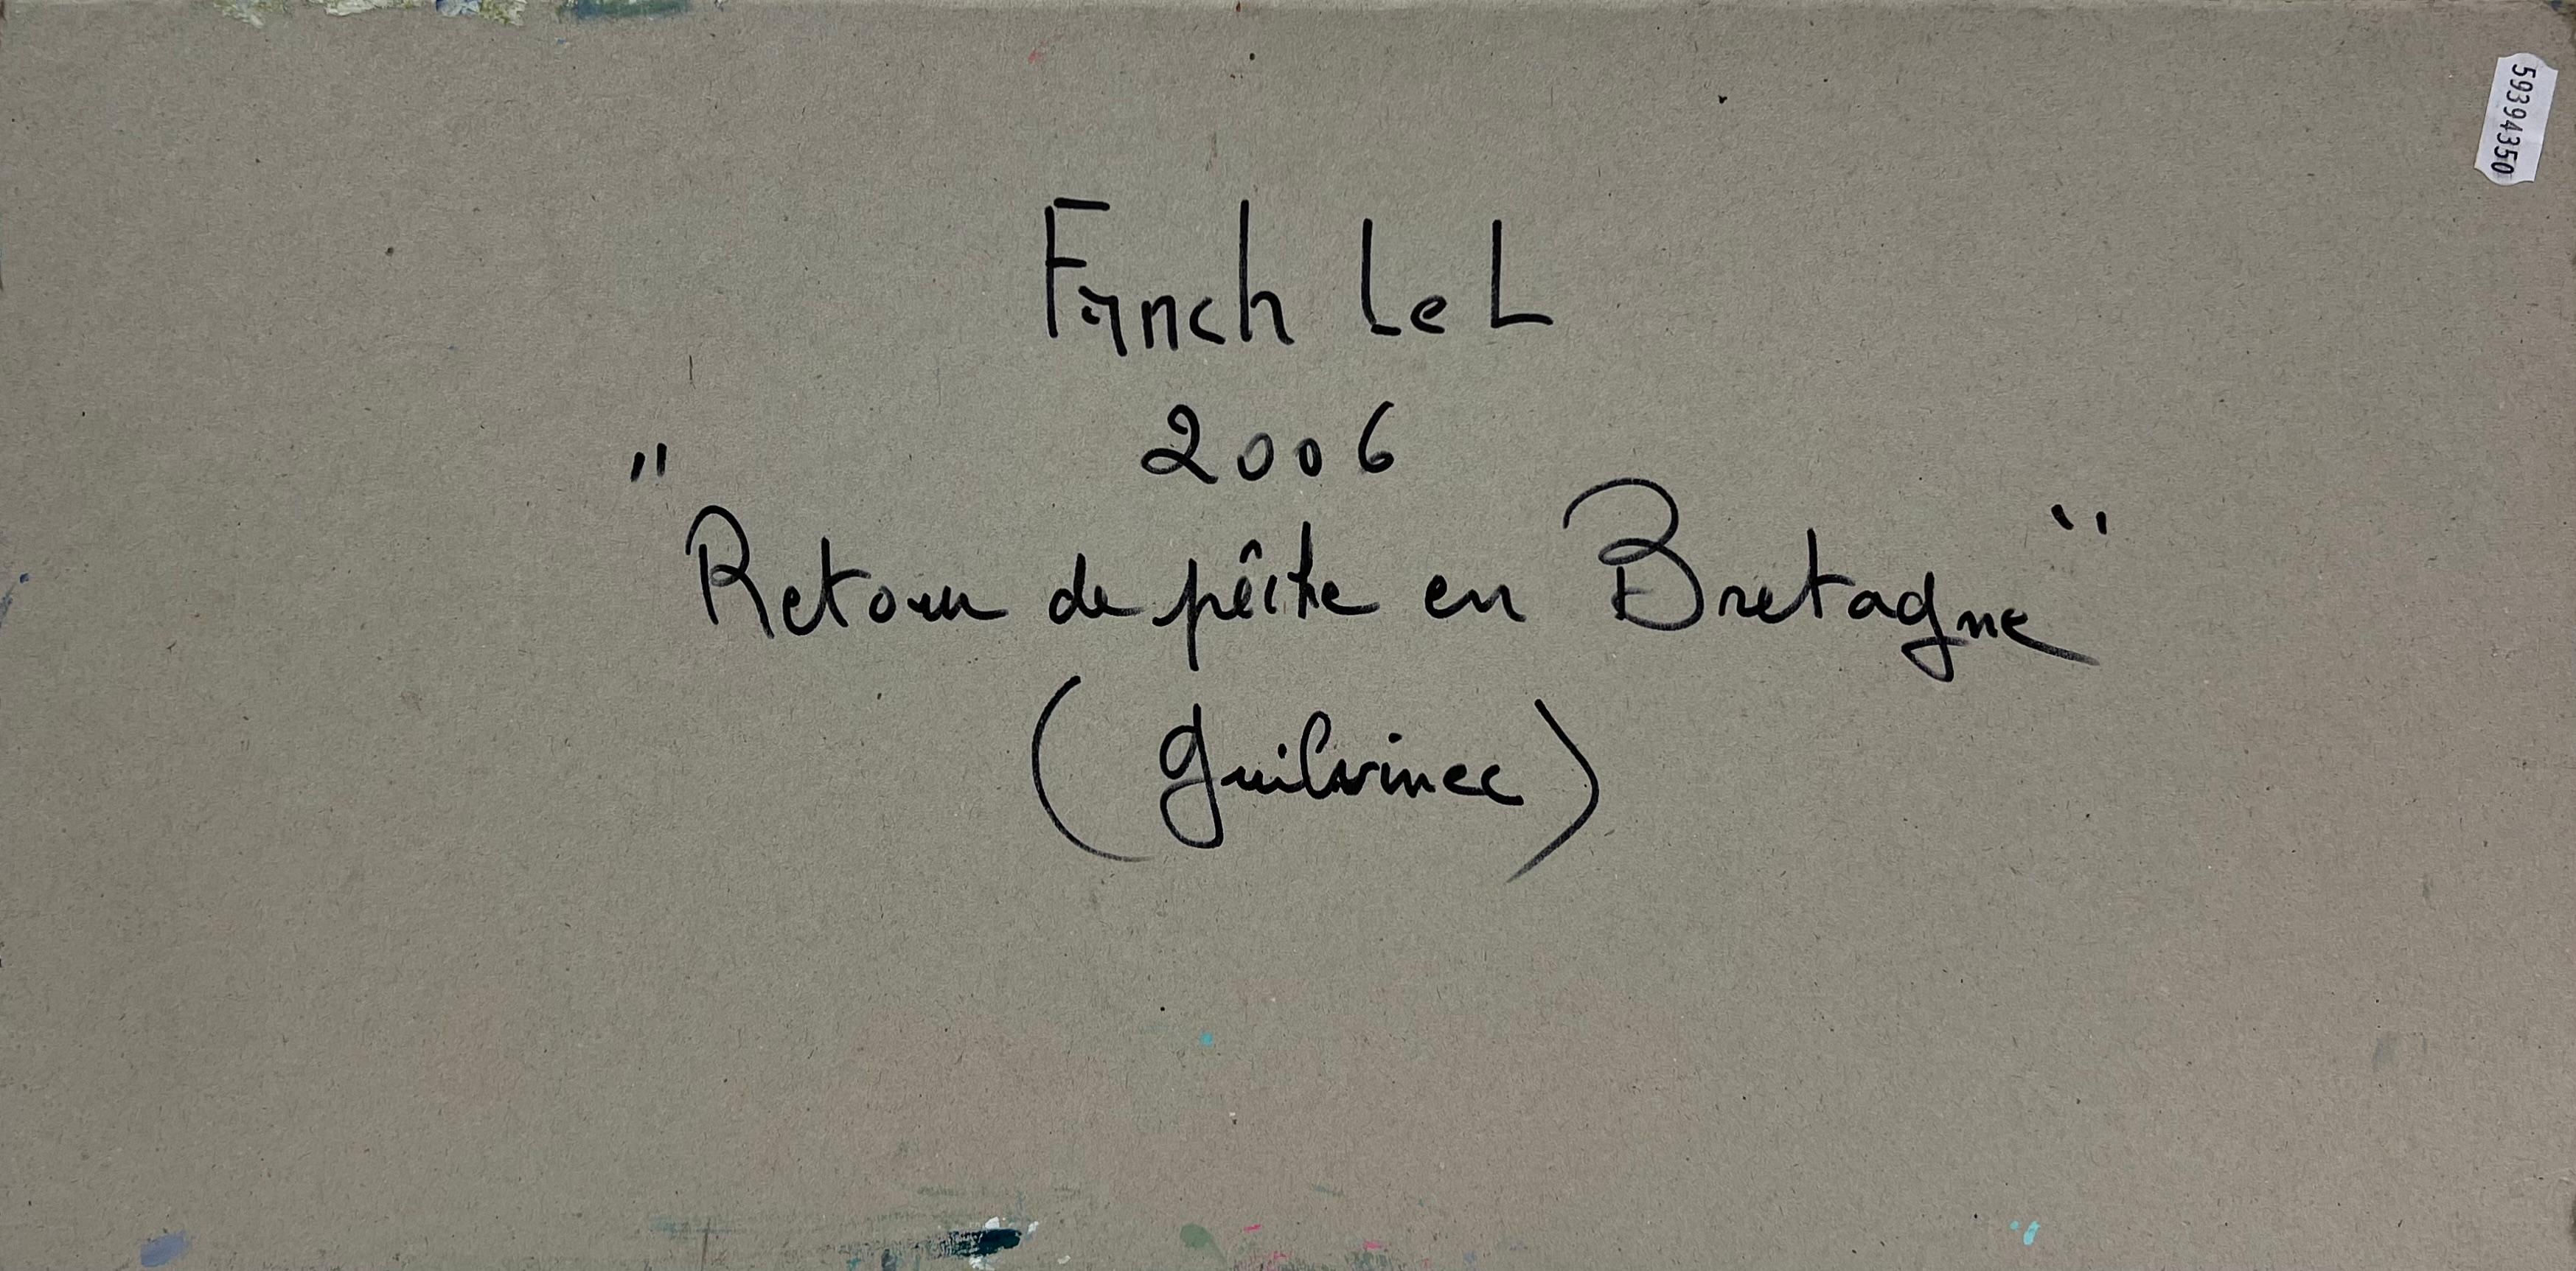 Fanch Le L
2006
"Retour de pêche en Bretagne"
(Guilvinec)
59394350